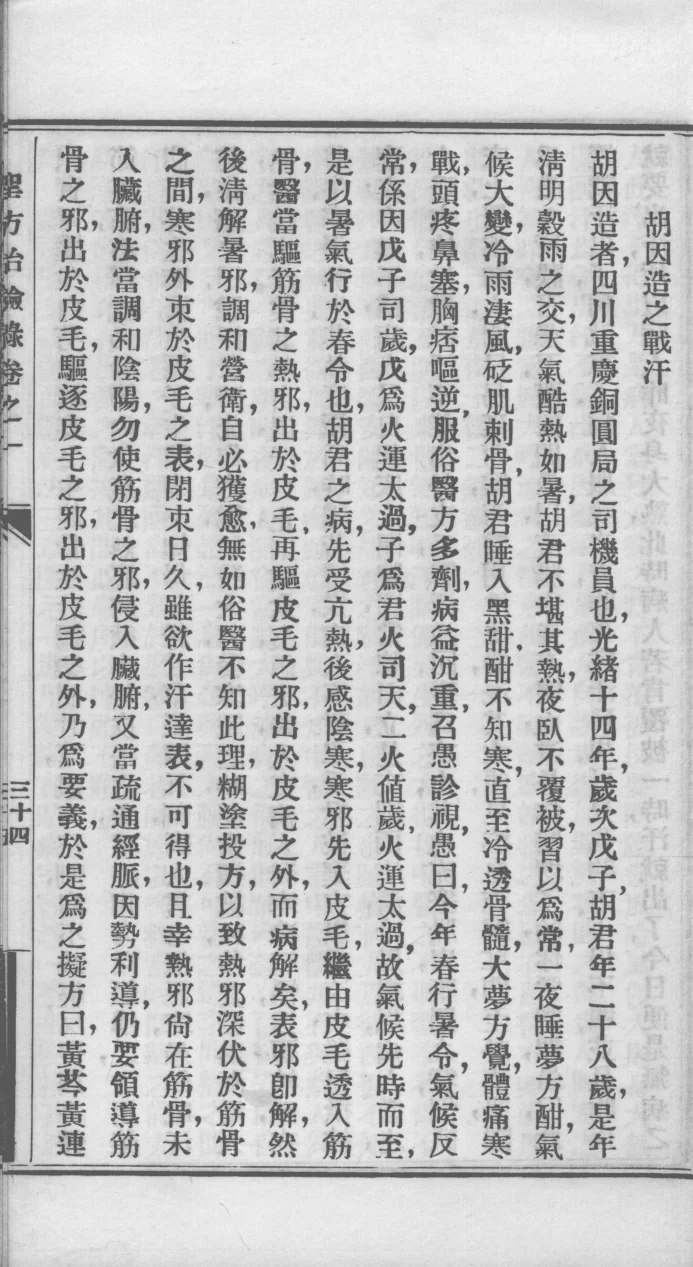 胡因造之戰汗
胡因造者,四川重慶銅圓局之司機員也,光緒十四年,歲次戊子,胡君年二十八歲,是年
淸明穀雨之交,天氣酷熱如暑,胡君不堪其熱,夜臥不覆被,習以爲常,一夜睡夢方酣,氣
候大變,冷雨淒風,砭肌刺骨,胡君睡入黑甜,酣不知寒,直至冷透骨髓,大夢方覺,體痛寒
戰,頭疼鼻塞,胸痞嘔逆,服俗醫方多劑,病益沉重,召愚診視,愚曰,今年春行暑令,氣候反
常,係因戊子司歲,戊爲火運太過,子爲君火司天,二火値歲,火運太過,故氣候先時而至,
是以暑氣行於春令也,胡君之病,先受亢熱,後感陰寒,寒邪先入皮毛,繼由皮毛透入筋
骨,醫當驅筋骨之熱邪,出於皮毛,再驅皮毛之邪,出於皮毛之外,而病解矣,表邪卽解,然
後淸解暑邪,調和營衛,自必獲愈,無如俗醫不知此理,糊塗投方,以致熱邪深伏於筋骨
之間,寒邪外束於皮毛之表,閉束日久,雖欲作汗達表,不可得也,且幸熱邪尙在筋骨,未
入臟腑,法當調和陰陽,勿使筋骨之邪,侵入臟腑,又當疏通經脈,因勢利導,仍要領導筋
骨之邪,出於皮毛,驅逐皮毛之邪,出於皮毛之外,乃爲要義,於是爲之擬方曰,黃芩黃連
聖方治驗錄卷之一
三十四